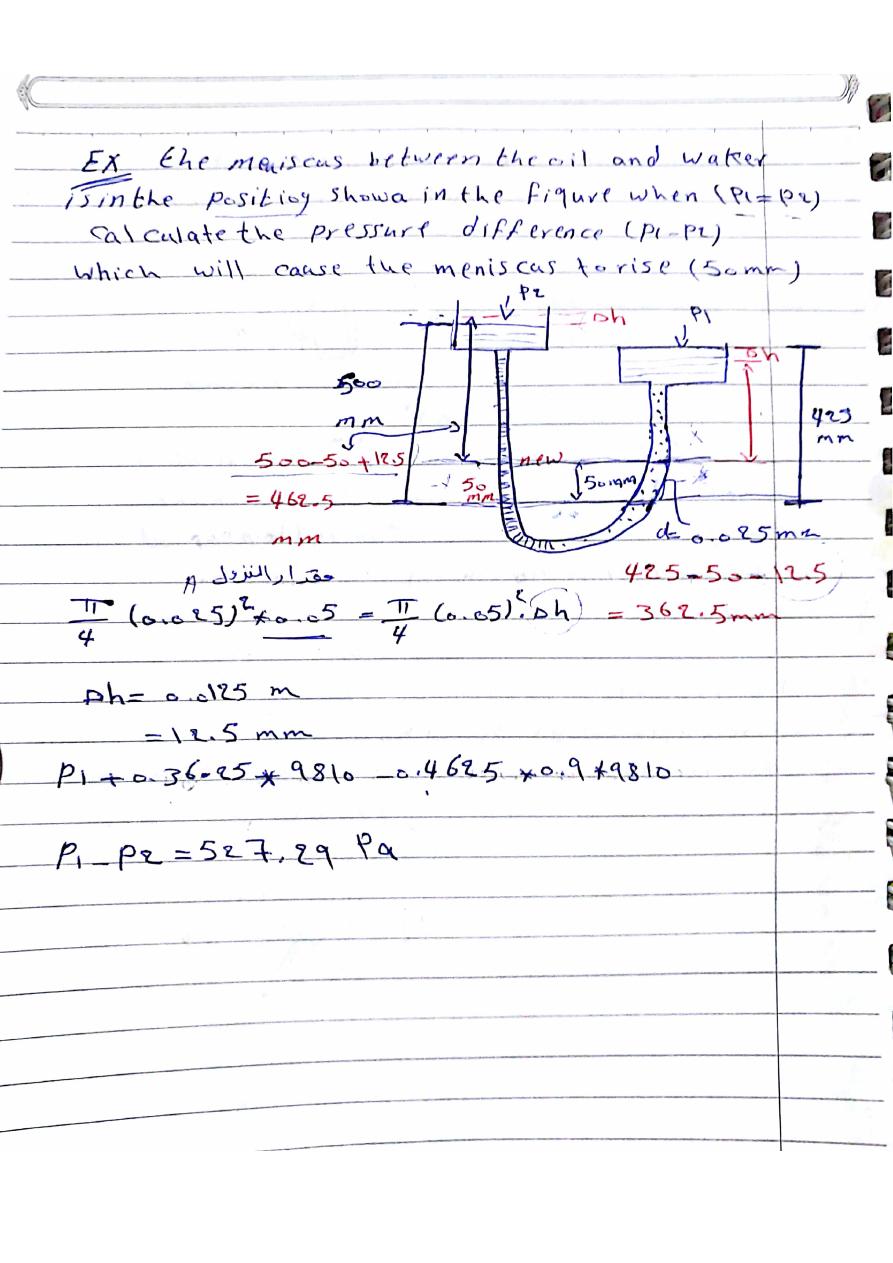 EX the meniscus between the oil and water
is in the position shown in the figure when (P1=P2)
Calculate the pressure difference (P1-P2)
which will cause the meniscus to rise (50mm)
P2
Δh
P1
Δh
500
mm
425
mm
500-50+12.5
new
50
mm
50mm
= 462.5
mm
d= 0.025m
مقدار النزول
425-50-12.5
π/4 (0.025)² * 0.05 = π/4 (0.05)². Δh
= 362.5mm
Δh= 0.0125 m
=12.5 mm
P1 + 0.3625 * 9810 - 0.4625 * 0.9 * 9810
P1 - P2 = 527.29 Pa